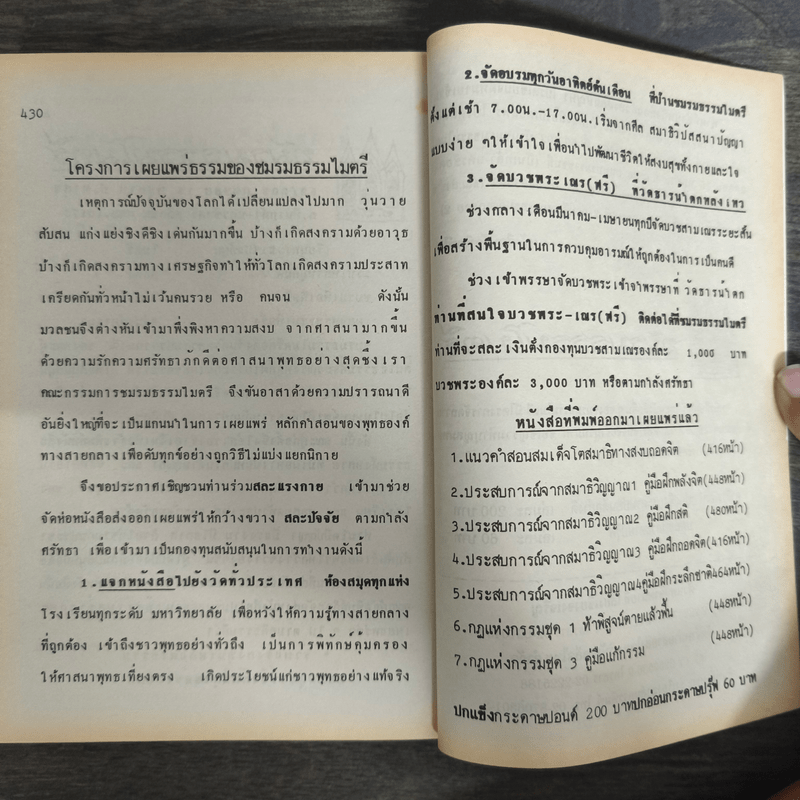 430
โครงการเผยแพร่ธรรมของชมรมธรรมไมตรี
เหตุการณ์ปัจจุบันของโลกได้เปลี่ยนแปลงไปมาก วุ่นวาย
สับสน แก่งแย่งชิงดีชิงเด่นกันมากขึ้น บ้างก็เกิดสงครามด้วยอาวุธ
บ้างก็เกิดสงครามทางเศรษฐกิจทำให้ทั่วโลกเกิดสงครามประสาท
เครียดกันทั่วหน้าไม่เว้นคนรวย หรือ คนจน ดังนั้น
มวลชนจึงต่างหันเข้ามาพึ่งพิงหาความสงบ จากศาสนามากขึ้น
ด้วยความรักความศรัทธาภักดีต่อศาสนาพุทธอย่างสุดซึ้งเรา
คณะกรรมการชมรมธรรมไมตรี จึงขันอาสาด้วยความปรารถนาดี
อันยิ่งใหญ่ที่จะเป็นแกนนำในการเผยแพร่ หลักคำสอนของพุทธองค์
ทางสายกลางเพื่อดับทุกข์อย่างถูกวิธีไม่แบ่งแยกนิกาย
จึงขอประกาศเชิญชวนท่านร่วมสละแรงกาย เข้ามาช่วย
จัดห่อหนังสือส่งออกเผยแพร่ให้กว้างขวาง สละปัจจัย ตามกำลัง
ศรัทธา เพื่อเข้ามาเป็นกองทุนสนับสนุนในการทำงานดังนี้
1.แจกหนังสือไปยังวัดทั่วประเทศ ห้องสมุดทุกแห่ง
โรงเรียนทุกระดับ มหาวิทยาลัย เพื่อหวังให้ความรู้ทางสายกลาง
ที่ถูกต้อง เข้าถึงชาวพุทธอย่างทั่วถึง เป็นการพิทักษ์คุ้มครอง
ให้ศาสนาพุทธเที่ยงตรง เกิดประโยชน์แก่ชาวพุทธอย่างแท้จริง
2.จัดอบรมทุกวันอาทิตย์ต้นเดือน ที่บ้านชมรมธรรมไมตรี
ตั้งแต่เช้า 7.00น.-17.00น.เริ่มจากศีล สมาธิวิปัสสนาปัญญา
แบบง่าย ๆให้เข้าใจเพื่อนำไปพัฒนาชีวิตให้สงบสุขทั้งกายและใจ
3.จัดบวชพระเณร(ฟรี) ที่วัดธารน้ำตกพลังเทว
ช่วงกลางเดือนมีนาคม-เมษายนทุกปีจัดบวชสามเณรระยะสั้น
เพื่อสร้างพื้นฐานในการควบคุมอารมณ์ให้ถูกต้องในการเป็นคนดี
ช่วงเข้าพรรษาจัดบวชพระเข้าจำพรรษาที่ วัดธารน้ำตก
ท่านที่สนใจบวชพระ-เณร(ฟรี) ติดต่อได้ที่ชมรมธรรมไมตรี
ท่านที่จะสละเงินตั้งกองทุนบวชสามเณรองค์ละ 1,000 บาท
บวชพระองค์ละ 3,000 บาท หรือตามกำลังศรัทธา
หนังสือที่พิมพ์ออกมาเผยแพร่แล้ว
1.แนวคำสอนสมเด็จโตสมาธิทางสงบถอดจิต (416หน้า)
2.ประสบการณ์จากสมาธิวิญญาณ1 คู่มือฝึกพลังจิต(448หน้า)
3.ประสบการณ์จากสมาธิวิญญาณ2 คู่มือฝึกสติ (480หน้า)
4.ประสบการณ์จากสมาธิวิญญาณ3 คู่มือฝึกถอดจิต(416หน้า)
5.ประสบการณ์จากสมาธิวิญญาณ4คู่มือฝึกระลึกชาติ464หน้า)
6.กฎแห่งกรรมชุด 1 ท้าพิสูจน์ตายแล้วฟื้น (448หน้า)
7.กฎแห่งกรรมชุด 3 คู่มือแก้กรรม (448หน้า)
ปกแข็งกระดาษปอนด์ 200 บาทปกอ่อนกระดาษปรู๊ฟ 60 บาท